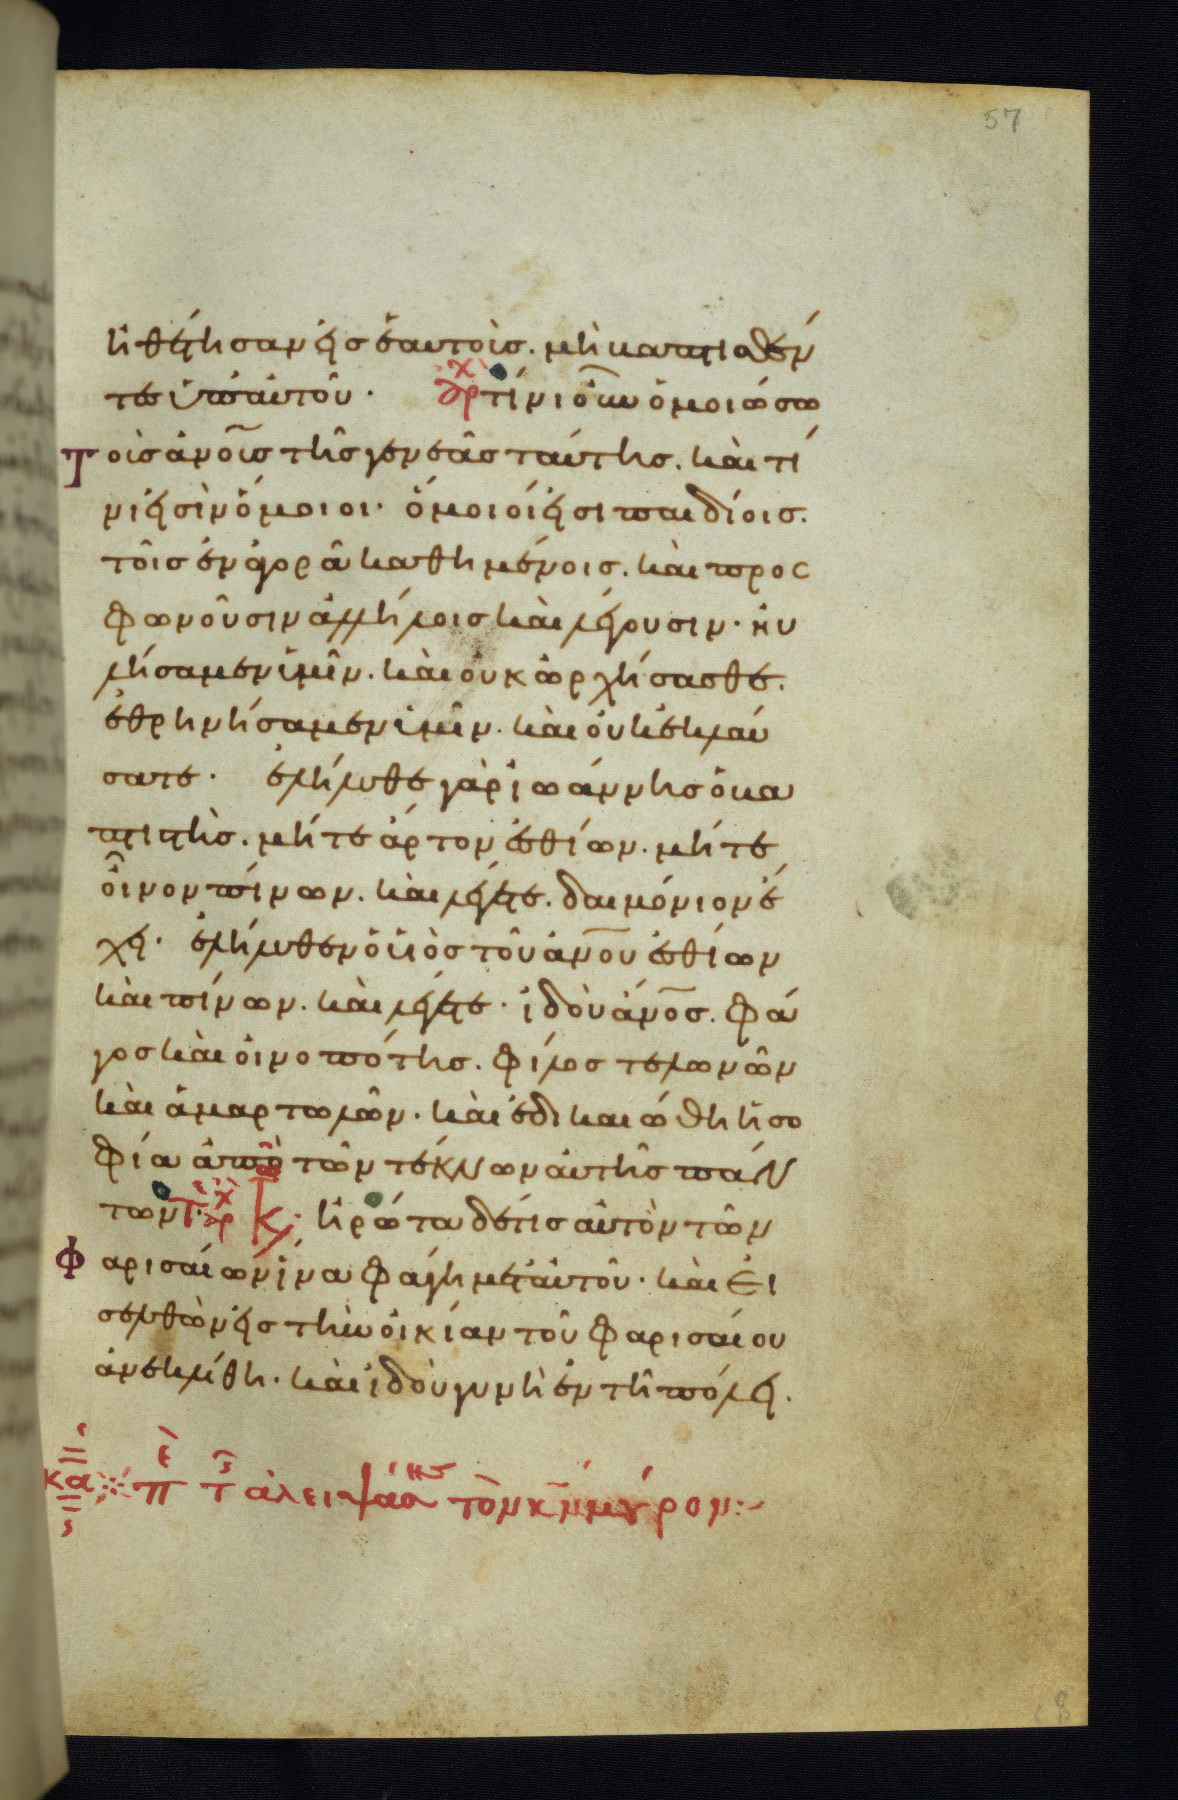 57
ἠθέτησαν εἰς ἑαυτοὺς. μὴ βαπτισθέν
τες ὑπ' αὐτοῦ. ἀρχ τίνι οὖν ὁμοιώσω
τοὺς ἀνο̅υ̅ς τῆς γενεᾶς ταύτης. καὶ τί
νι εἰσὶν ὅμοιοι· ὅμοιοί εἰσι παιδίοις.
τοῖς ἐν ἀγορᾶ καθημένοις. καὶ προς
φωνοῦσιν ἀλλήλοις καὶ λέγουσιν· ηὐ
λήσαμεν ὑμῖν. καὶ οὐκ ὠρχήσασθε.
ἐθρηνήσαμεν ὑμῖν. καὶ οὐκ ἐκλαύ
σατε· ἐλήλυθε γὰρ ἰωάννης ὁ βα
πτιστὴς. μήτε ἄρτον ἐσθίων. μήτε
οἶνον πίνων. καὶ λέγετε. δαιμόνιον ἔ
χει· ἐλήλυθεν ὁ υἱὸς τοῦ ἀνο̅υ̅ ἐσθίων
καὶ πίνων. καὶ λέγετε· ἰδοὺ ἄνο̅ς̅. φά
γος καὶ οἰνοπότης. φίλος τελωνῶν
καὶ ἁμαρτωλῶν. καὶ ἐδικαιώθη ἡ σο
φία ἀπὸ τῶν τέκνων αὐτῆς πάν
των. ἀρχ ἠρώτα δέ τις αὐτὸν τῶν
φαρισαίων ἵνα φάγη μετ' αὐτοῦ· καὶ εἰ
σελθὼν εἰς τὴν οἰκίαν τοῦ φαρισαίου
ἀνεκλίθη. καὶ ἰδοὺ γυνὴ ἐν τῆ πόλει.
κα π τ ἀλειψάσης τὸν κ̅ν̅ μύρον:-